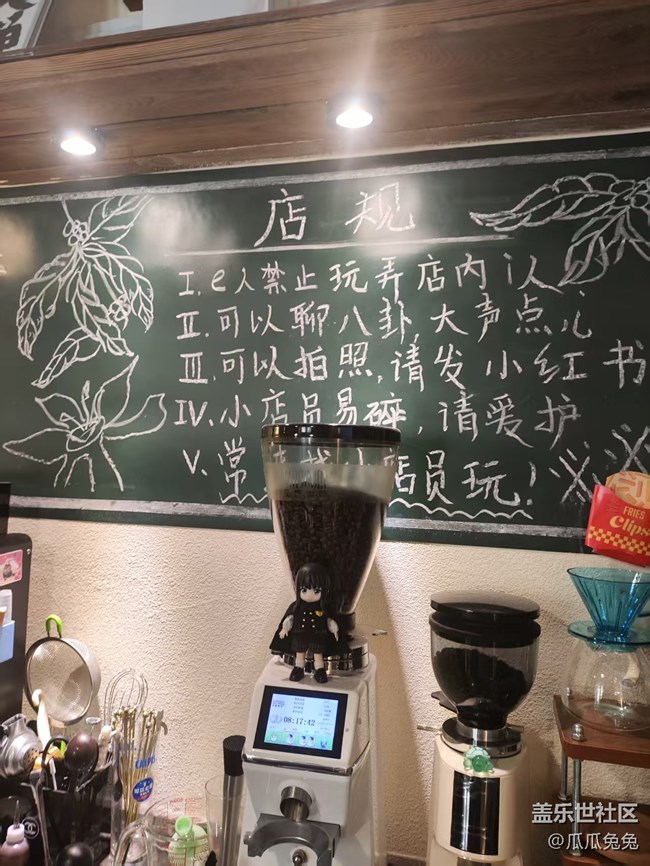 店规
I. e人禁止玩弄店内i人
II. 可以聊八卦,大声点儿
III. 可以拍照,请发小红书
IV. 小店员易碎,请爱护
V. 常 店员玩!
FRIES
Clips
08:17:42
盖乐世社区
@瓜瓜兔兔